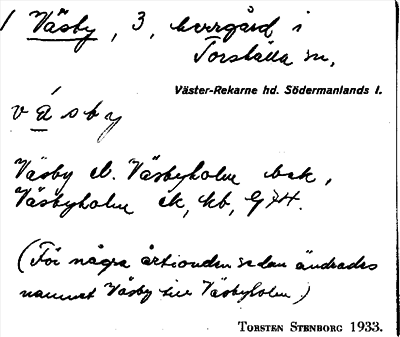 1 Väsby, 3, herrgård i
Torshälla sn,
Väster-Rekarne hd. Södermanlands l.
vásby
Väsby el. Väsbyholm bek,
Väsbyholm ek, kb, GTK.
(För några årtionden sedan ändrades
namnet Väsby till Väsbyholm)
TORSTEN STENBORG 1933.